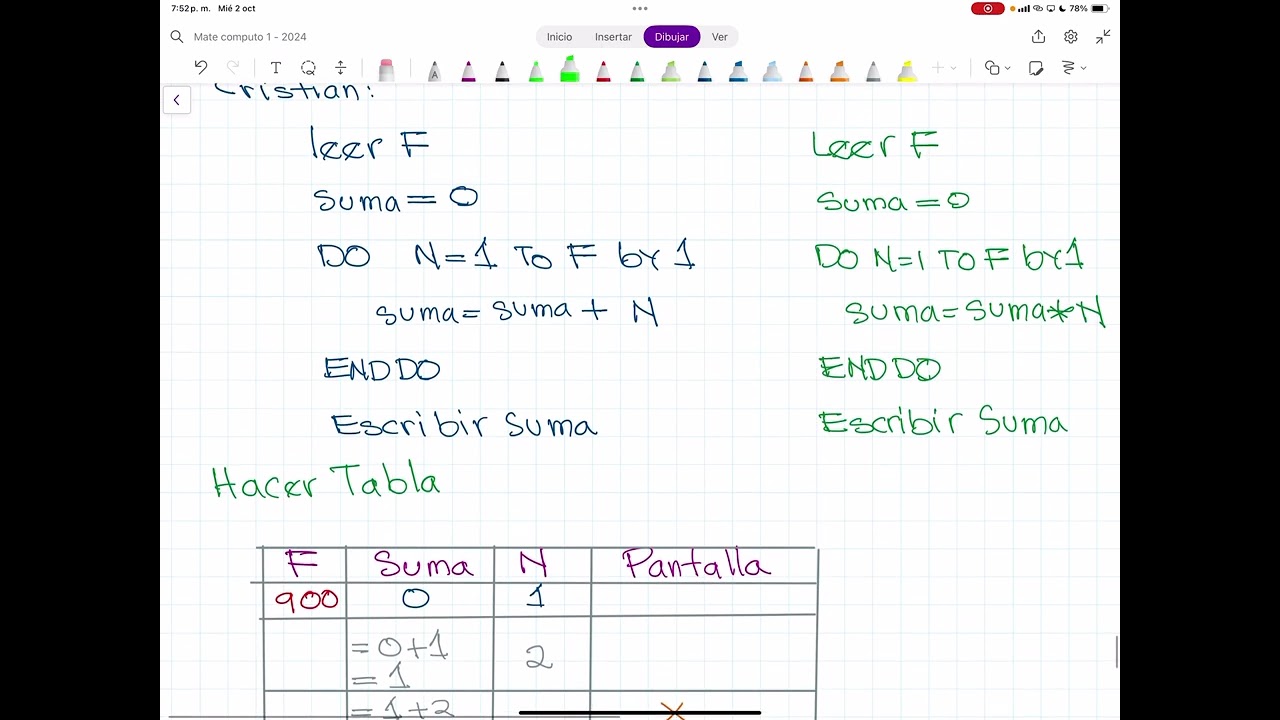 7:52 p. m. Mié 2 oct
78%
Mate computo 1 - 2024
Inicio Insertar Dibujar Ver
Cristian:
leer F
Suma = 0
DO N=1 TO F by 1
suma = suma + N
ENDDO
Escribir suma
Leer F
Suma = 0
DO N=1 TO F by 1
suma = suma * N
ENDDO
Escribir Suma
Hacer Tabla
F Suma N Pantalla
900 0 1
= 0+1 2
= 1
= 1+2